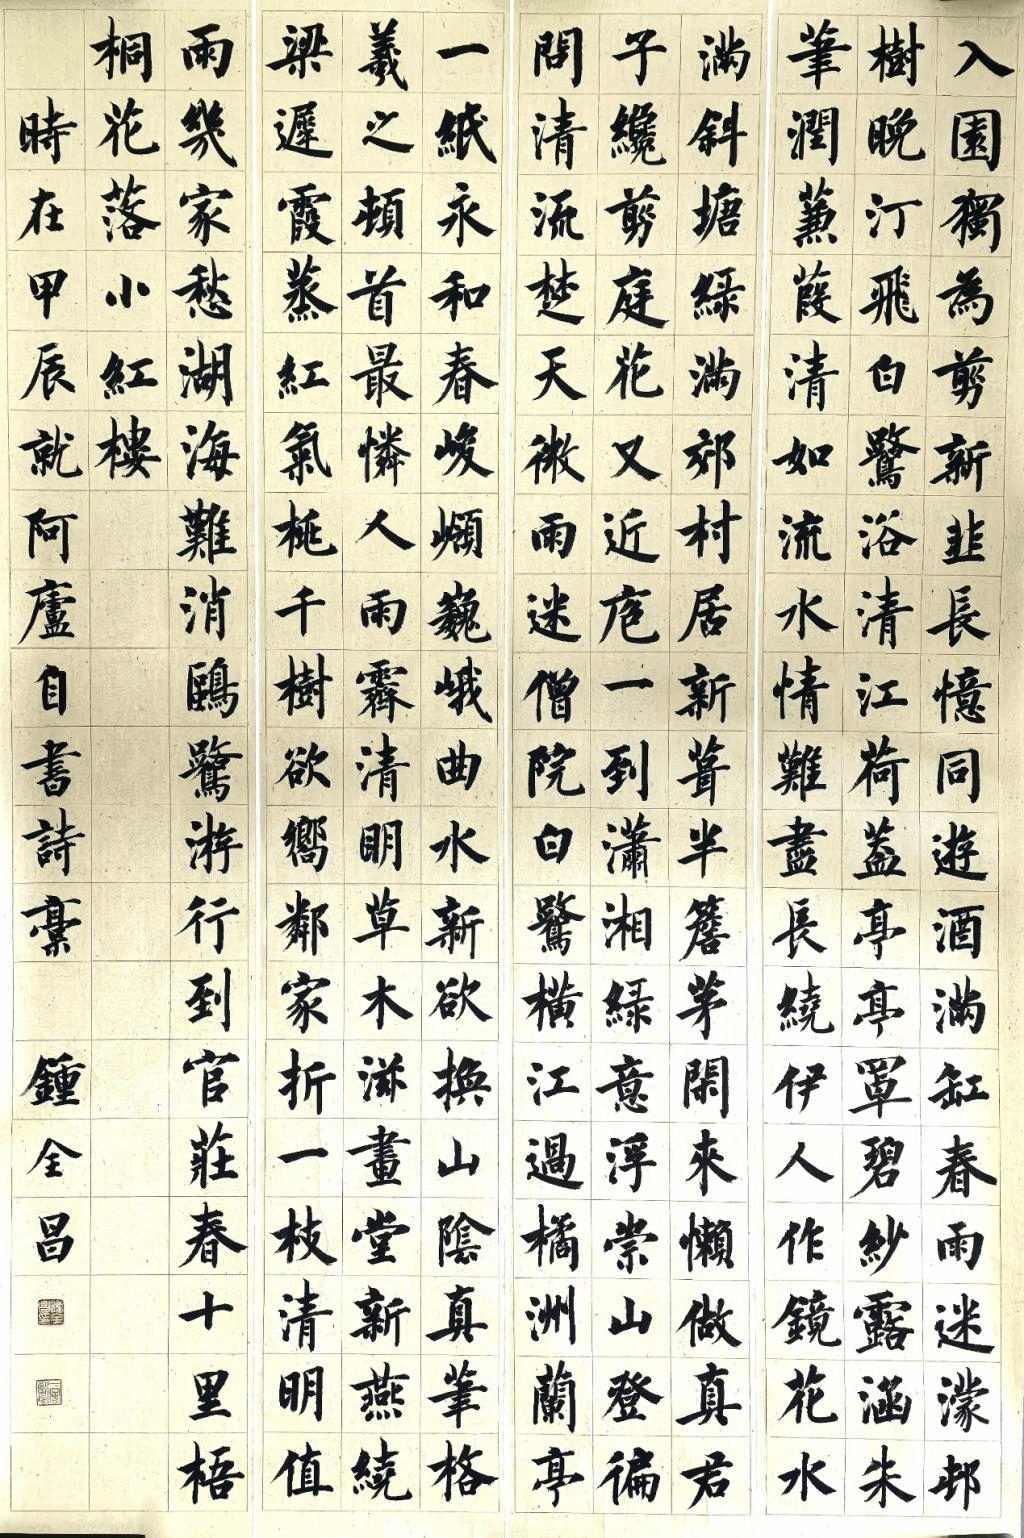 入園獨為剪新韭長憶同遊酒滿缸春雨迷濛邨
樹晚汀飛白鷺浴清江荷葢亭亭罩碧紗露涵朱
筆潤蒹葭清如流水情難盡長繞伊人作鏡花水
滿斜塘綠滿郊村居新葺半簷茅閑來懶做真君
子纔剪庭花又近庖一到瀟湘綠意浮崇山登徧
問清流楚天微雨迷僧院白鷺橫江過橘洲蘭亭
一紙永和春峻嶺巍峨曲水新欲換山陰真筆格
羲之頓首最憐人雨霽清明草木滋畫堂新燕繞
梁遲霞蒸紅氣桃千樹欲嚮鄰家折一枝清明值
雨幾家愁湖海難消鷗鷺游行到官莊春十里梧
桐花落小紅樓
時在甲辰就阿廬自書詩稾 鍾全昌